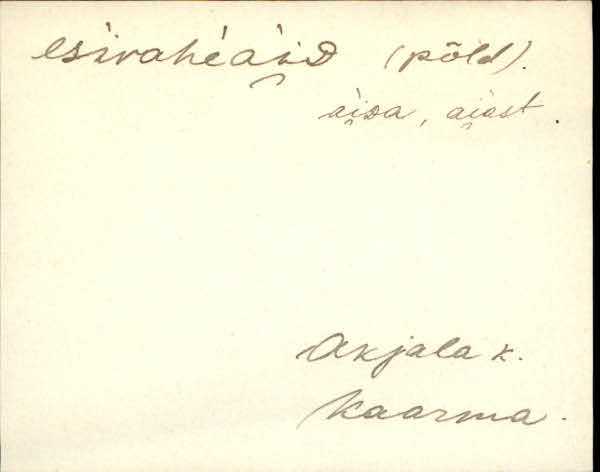 èsìvahèài̯D (põld).
ài̯Da, ai̯ast.
Akjala k.
Kaarma.